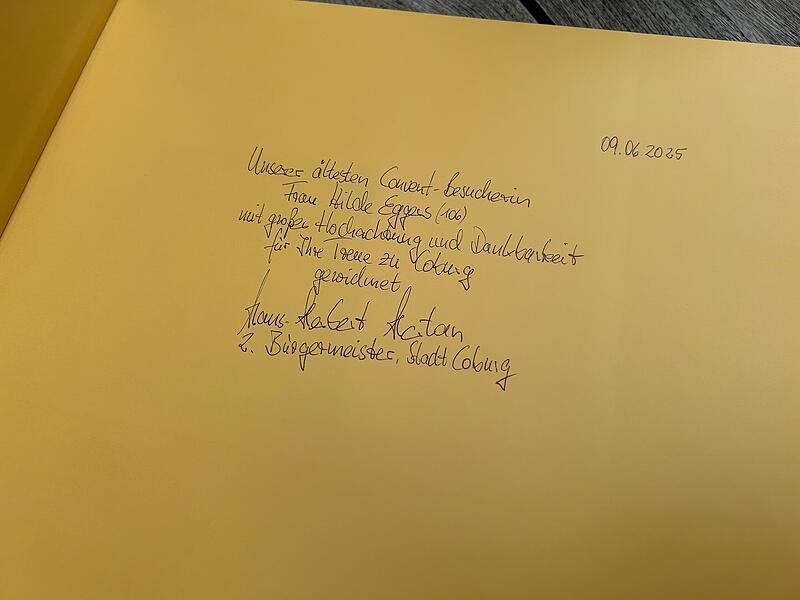 09.06.2025
Unserer ältesten Convent-Besucherin
Frau Hilde Eggers (106)
mit großer Hochachtung und Dankbarkeit
für Ihre Treue zu Coburg
gewidmet
Hans-Herbert Hartan
2. Bürgermeister, Stadt Coburg